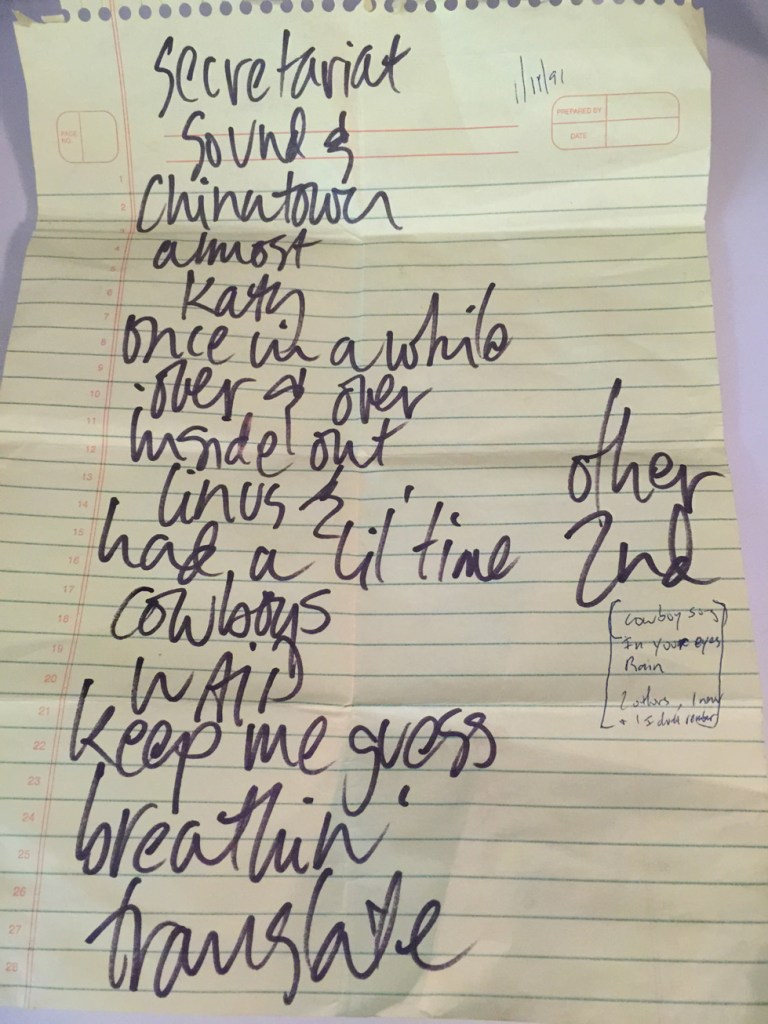 secretariat
1/18/91
PREPARED BY
DATE
PAGE NO.
Sound &
Chinatown
almost
Katy
once in a while
over & over
inside out
linus &
had a lil' time
cowboys
WAIP
keep me guess
breathin'
translate
other
2nd
cowboy song
In your eyes
Rain
2 others, 1 new
+ 1 I don't
1
2
3
4
5
6
7
8
9
10
11
12
13
14
15
16
17
18
19
20
21
22
23
24
25
26
27
28